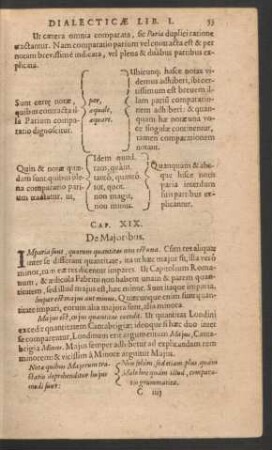 DIALECTICÆ LIB. I. 53
Ut cætera omnia comparata, se Paria duplici ratione
tractantur. Nam comparatio parium vel contracta est & per
notam brevissimè indicata, vel plena & duabus partibus ex-
plicata.
Sunt certæ notæ,
quibus contractio-
la Parium compa-
ratio dignoscitur.
par,
æquale,
æquare.
Ubicunq, hasce notas vi-
demus adhiberi, ibi cer-
tissimum est brevem il-
lam pariū comparatio-
nem adhiberi: &
quam hæ notæ una vo-
ce singulæ connentur,
tamen comparationem
notant.
Quin & notæ quæ-
dam sunt quibus ple-
na comparatio pari-
um tractatur, ut,
Idem quod,
tam, quàm,
tantò, quantò,
tot, quot.
non magis,
non minus.
Quanquam & abs-
que hisce notis
paria interdum
suis partibus ex-
plicantur.
CAP. XIX.
De Majoribus.
IMparia sunt, quorum quantitas non est una. Cùm res aliquæ
inter se differunt quantitate, ita ut hæc major sit, illa verò
minor, tum eæ res dicuntur impares. Ut Capitolium Roma-
num, & ædicula Fabritii non habent unam & parem quanti-
tatem, sed illud majus est, hæc minor. Sunt itaque imparia.
Impar est majus aut minus. Quæcunque enim sunt quanti-
tate imparia, eorum alia majora sunt, alia minora.
Majus est, cujus quantitas excedit. Ut quantitas Londini
excedit quantitatem Cantabrigiæ: ideoque si hæc duo inter
se comparentur, Londinum erit argumentum Majus, Canta-
brigia Minus. Majus semper adhibetur ad explicandum rem
minorem & vicissim à Minore arguitur Majus.
Notæ quibus Majorum tra-
ctatio deprehenditur hujus-
modi sunt:
Non solùm, sed etiam plus quàm
Malo hoc quàm illud, compara-
tio grammatica.
C iiij